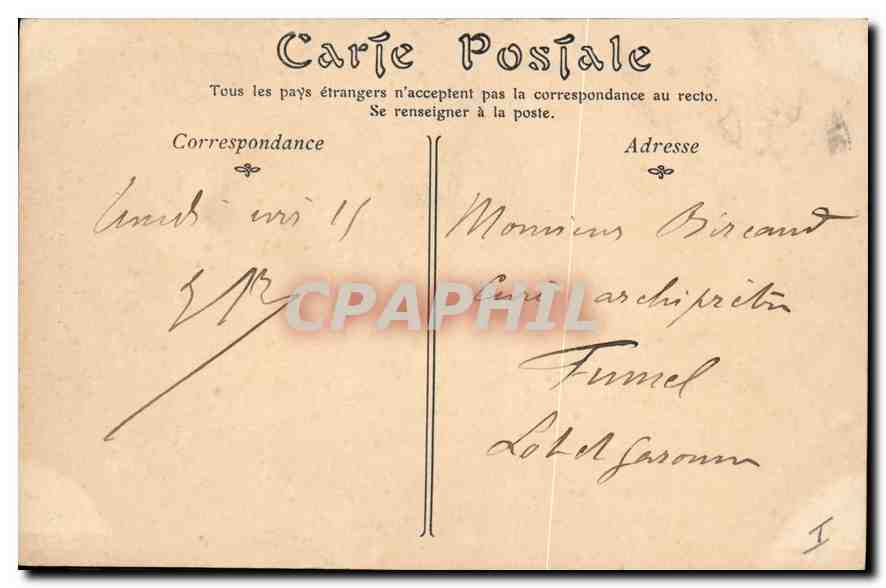 Carte Postale
Tous les pays étrangers n'acceptent pas la correspondance au recto.
Se renseigner à la poste.
Correspondance
Adresse
Lundi 15
Monsieur
Curé archiprêtre
Fumel
Lot et Garonne
CPAPHIL
I